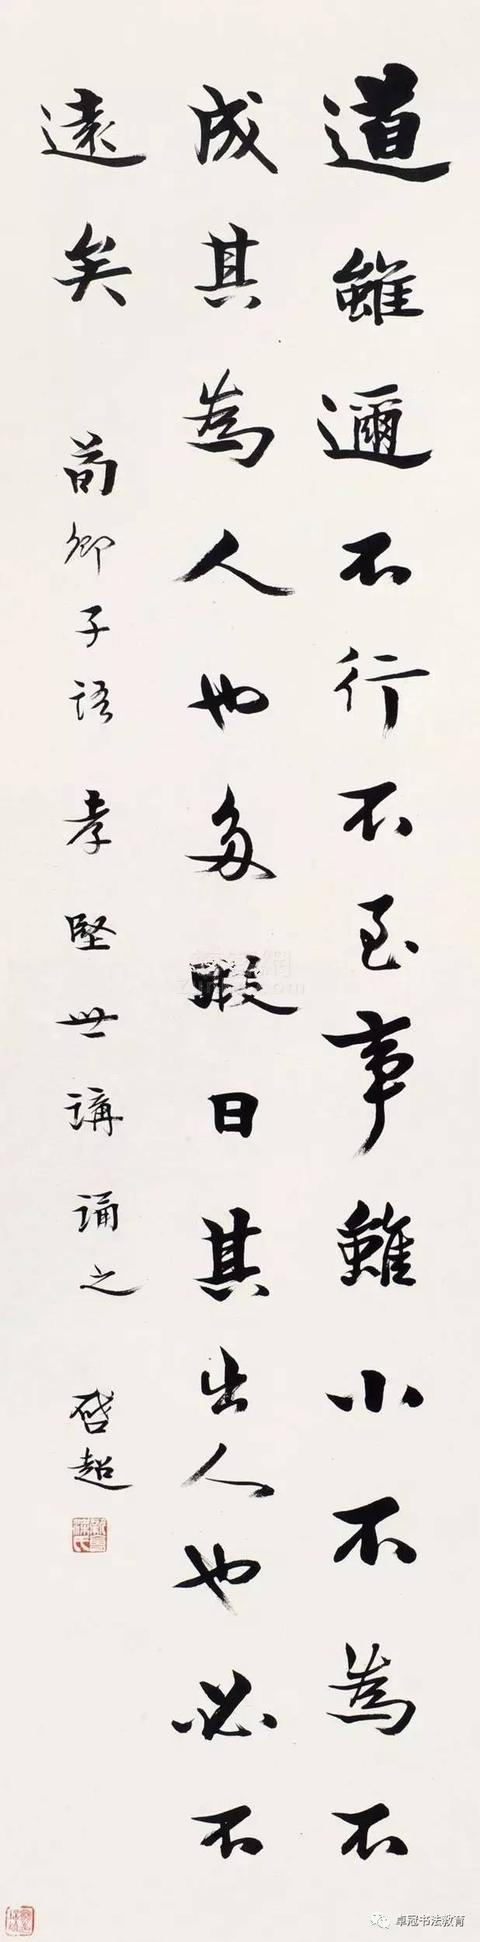 道雖邇不行不至事雖小不為不
成其為人也多暇日其出人也必不
遠矣 荀卿子語 孝堅世講誦之 啓超
卓冠书法教育